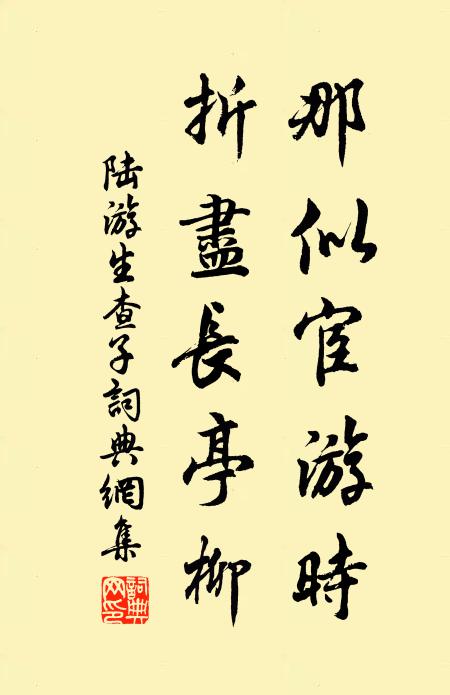 那似宦游時
折盡長亭柳
陆游生查子詞典網集
詞典网印